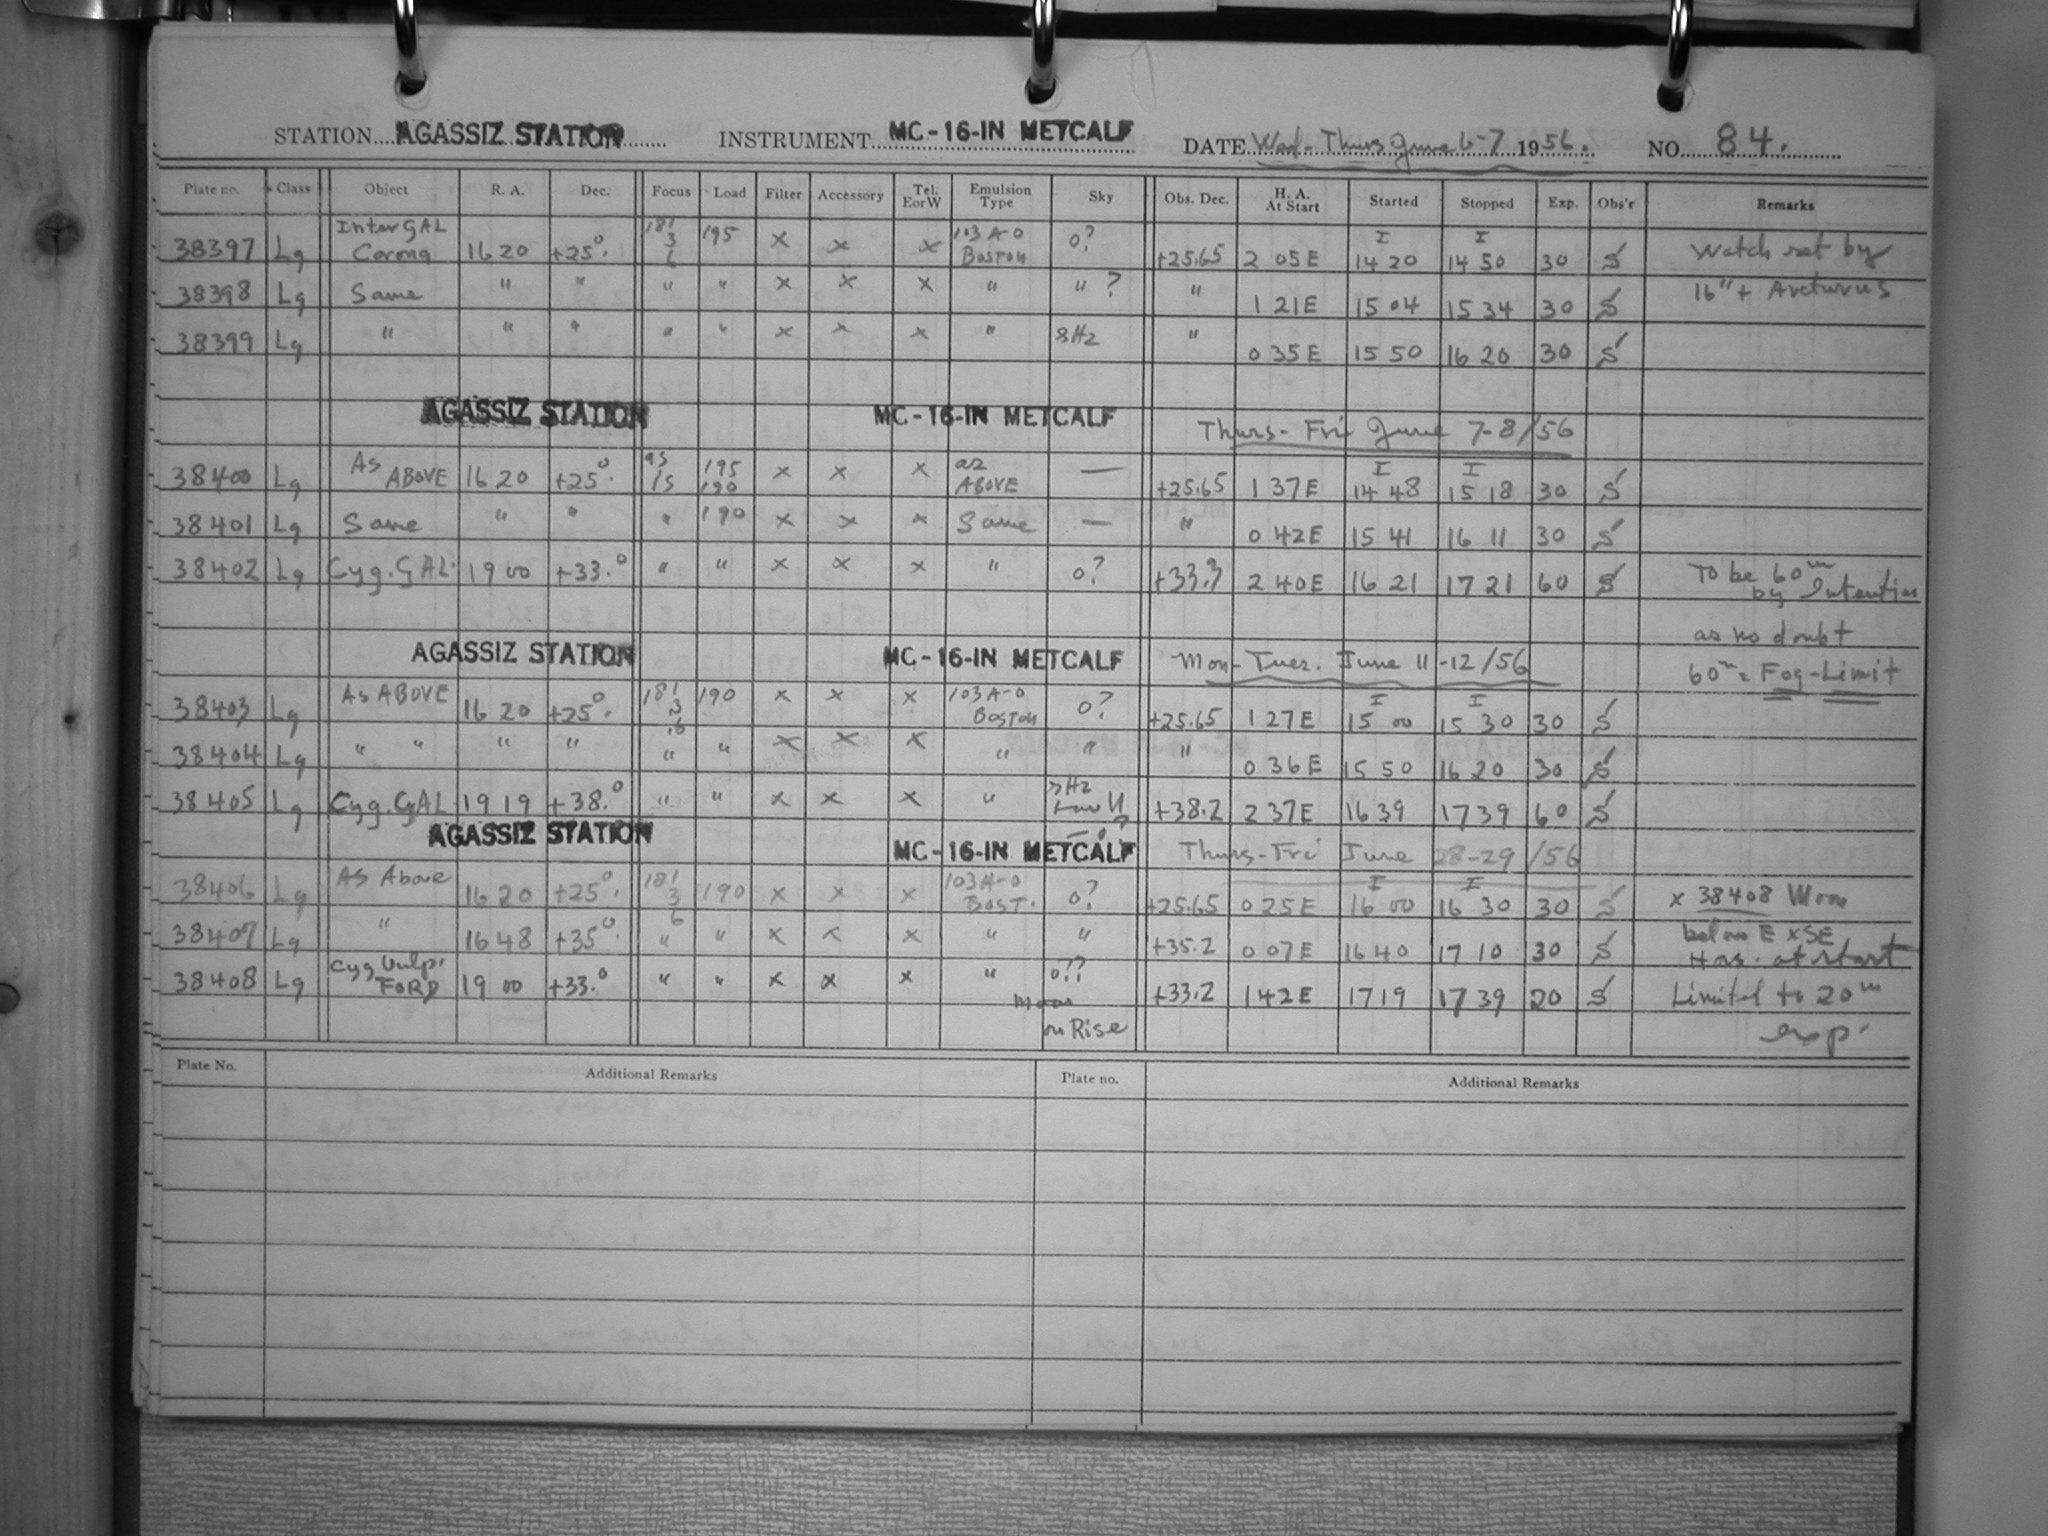 STATION AGASSIZ STATION INSTRUMENT MC-16-IN METCALF DATE Wed-Thurs June 6-7 1956. NO. 84.
Plate no. Class Object R. A. Dec. Focus Load Filter Accessory Tel. EorW Emulsion Type Sky Obs. Dec. H. A. At Start Started Stopped Exp. Obs'r Remarks
38397 Lg InterGAL Corona 16 20 +25° 181 3 6 195 x x x 103A-0 BOSTON 0? +25.65 2 05E I 14 20 I 14 50 30 S Watch set by
38398 Lg Same " " " " x x x " " ? " 1 21E 15 04 15 34 30 S 16" + Arcturus
38399 Lg " " " " " x x x " sHz " 0 35E 15 50 16 20 30 S
AGASSIZ STATION MC-16-IN METCALF Thurs-Fri June 7-8/56
38400 Lg As ABOVE 16 20 +25° as is 195 190 x x x as ABOVE — +25.65 1 37E I 14 48 I 15 18 30 S
38401 Lg Same " " " 190 x x x Same — " 0 42E 15 41 16 11 30 S
38402 Lg Cyg. GAL. 19 00 +33.° " " x x x " 0? +33.3 2 40E 16 21 17 21 60 S To be 60m by Intention
as no doubt
AGASSIZ STATION MC-16-IN METCALF Mon-Tues. June 11-12/56 60m = Fog-Limit
38403 Lg As ABOVE 16 20 +25° 181 3 6 190 x x x 103A-0 BOSTON 0? +25.65 1 27E I 15 00 I 15 30 30 S
38404 Lg " " " " " " x x x " " " 0 36E 15 50 16 20 30 S
38405 Lg Cyg. GAL 19 19 +38.° " " x x x " sHz Low ? +38.2 2 37E 16 39 17 39 60 S
AGASSIZ STATION MC-16-IN METCALF Thurs-Fri June 28-29/56
38406 Lg As Above 16 20 +25° 181 3 6 190 x x x 103A-0 BOST. 0? +25.65 0 25E I 16 00 I 16 30 30 S x 38408 Moon
38407 Lg " 16 48 +35° " " x x x " " +35.2 0 07E 16 40 17 10 30 S below E x SE Hor. at start
38408 Lg Cyg Vulp. FORD 19 00 +33.° " " x x x " 0?? Moon on Rise +33.2 1 42E 17 19 17 39 20 S Limited to 20m
exp.
Plate No. Additional Remarks Plate no. Additional Remarks